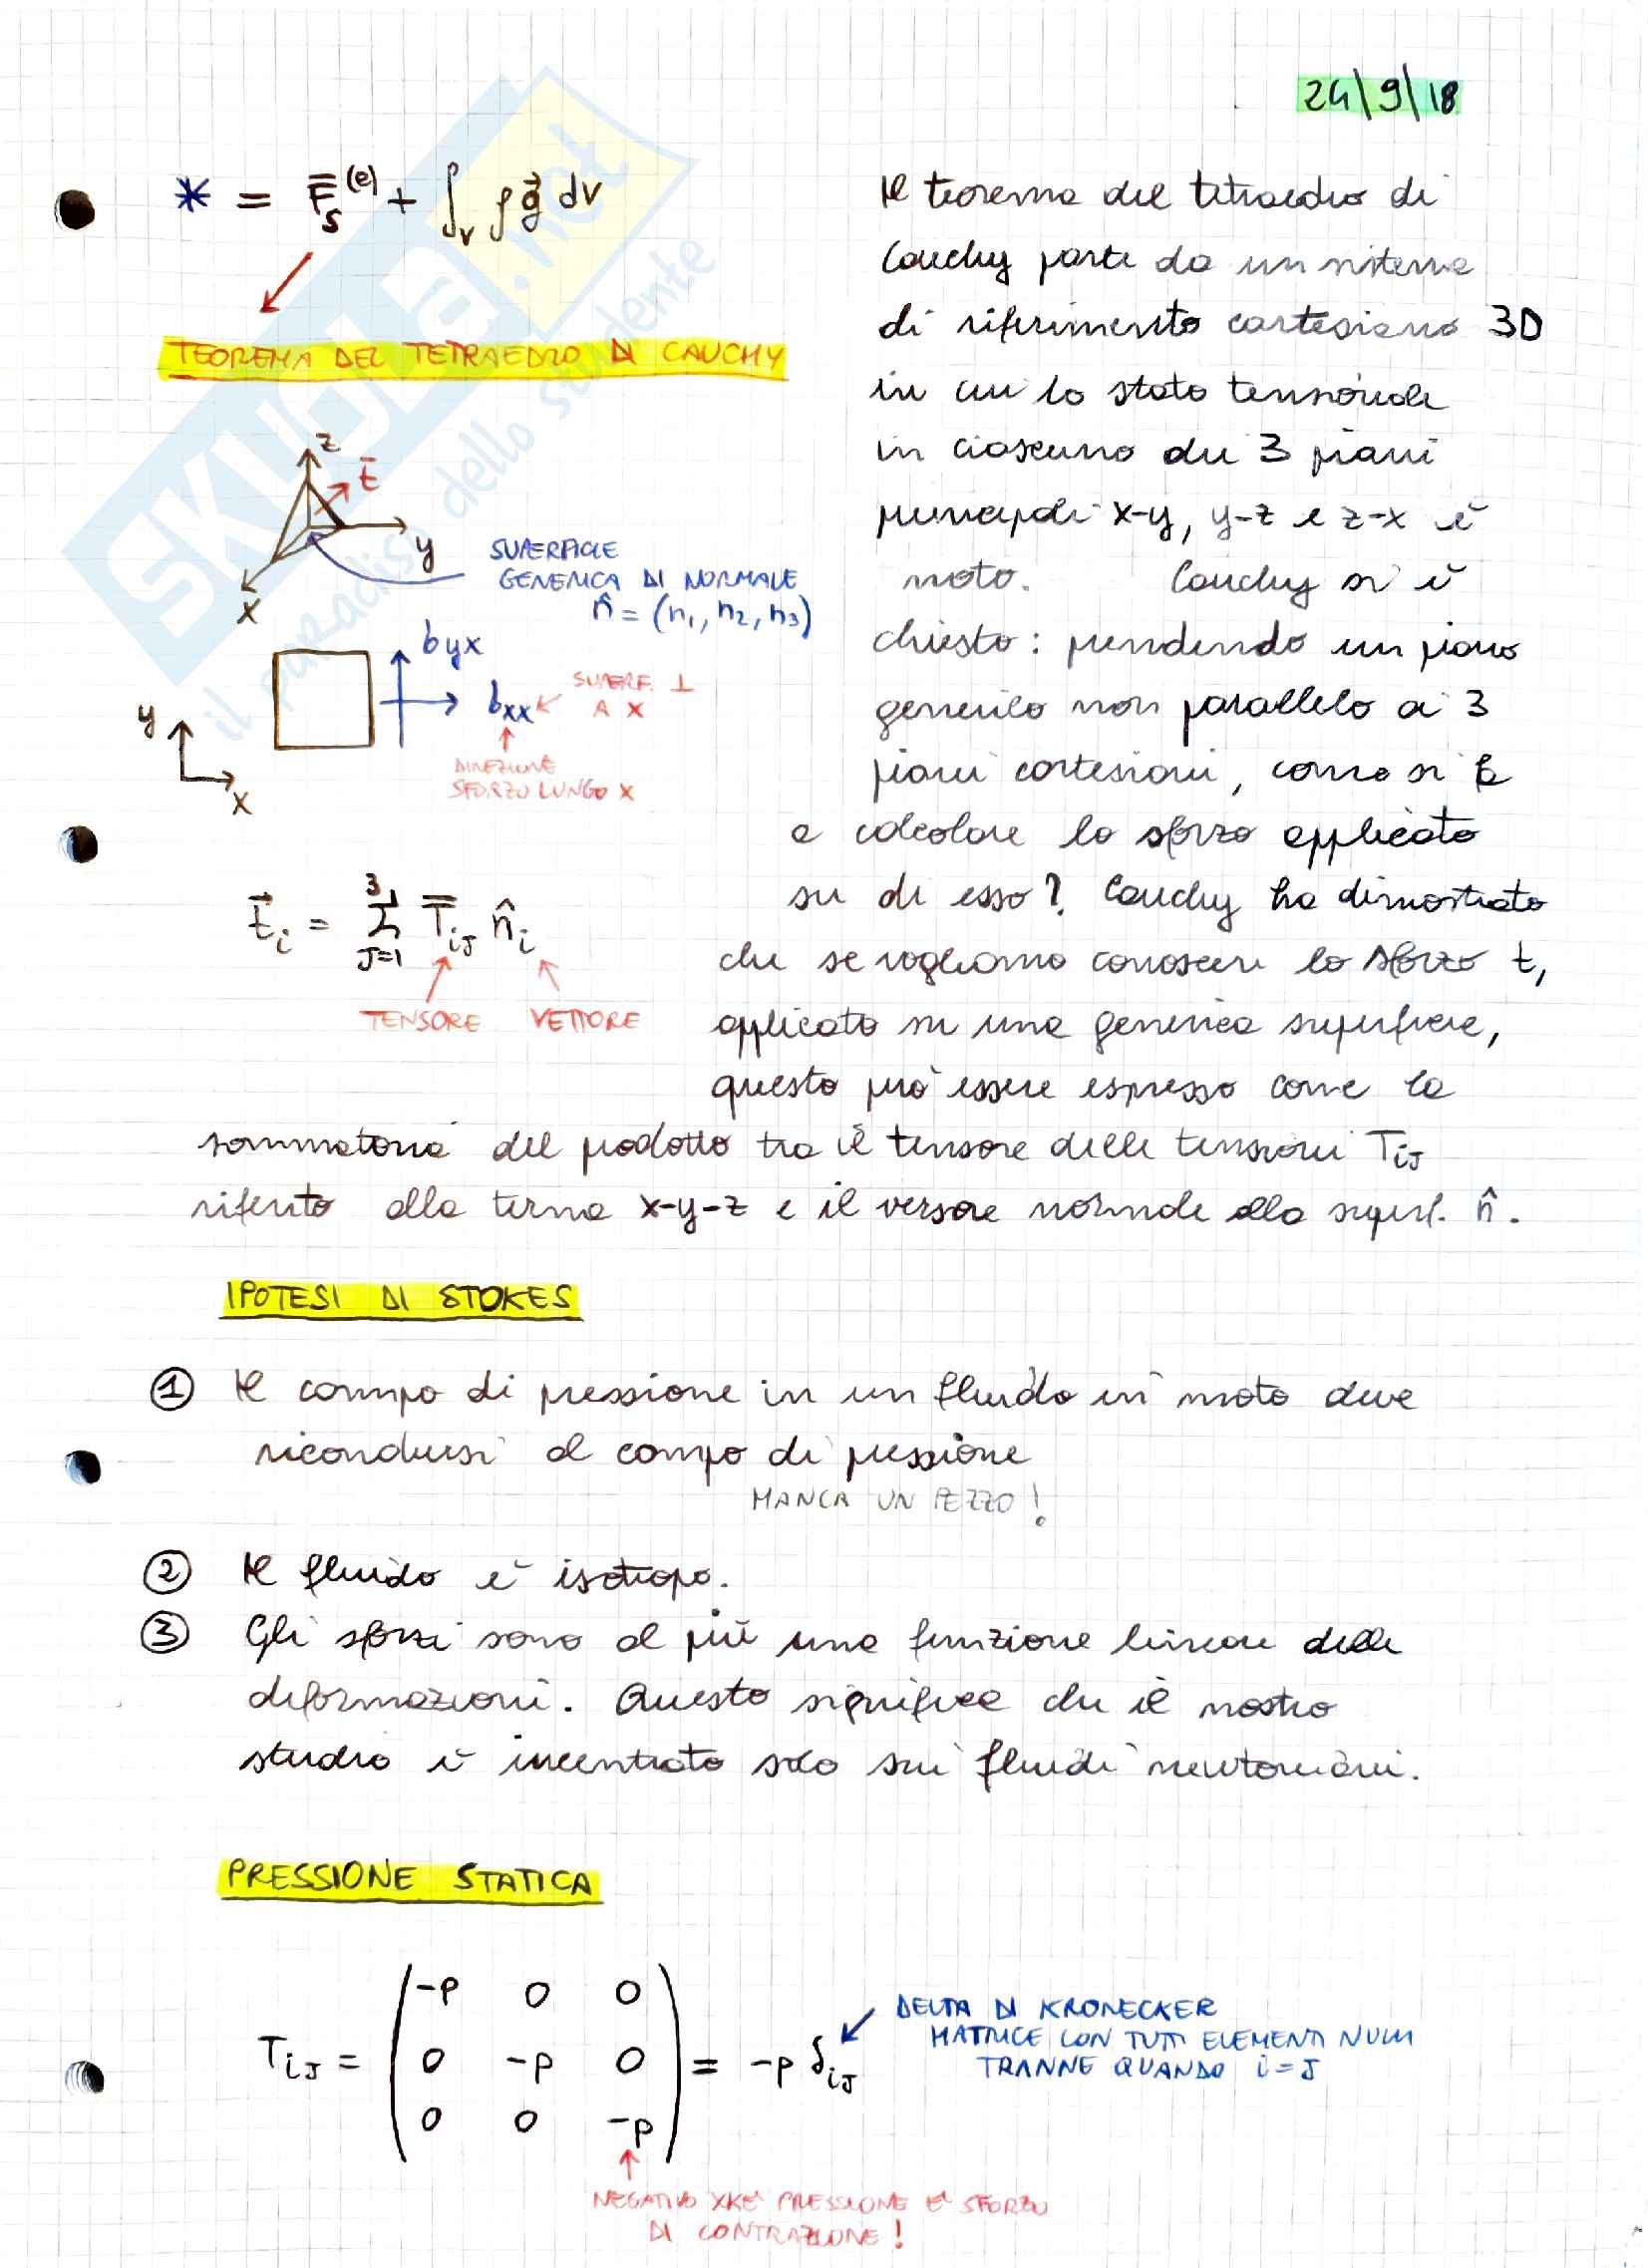 24/9/18
* = F̿_S^(e) + ∫_V ρ g⃗ dV
TEOREMA DEL TETRAEDRO DI CAUCHY
z
t̄
y
x
SUPERFICIE
GENERICA DI NORMALE
n̂ = (n₁, n₂, n₃)
byx
bxx
SUPERF. ⊥
A X
DIREZIONE
SFORZO LUNGO X
y
x
Il teorema del tetraedro di
Cauchy parte da un sistema
di riferimento cartesiano 3D
in cui lo stato tensionale
in ciascuno dei 3 piani
principali x-y, y-z e z-x è
noto. Cauchy si è
chiesto: prendendo un piano
generico non parallelo ai 3
piani cartesiani, come si fa
a calcolare lo sforzo applicato
su di esso? Cauchy ha dimostrato
che se vogliamo conoscere lo sforzo t,
applicato su una generica superficie,
questo può essere espresso come la
sommatoria del prodotto tra il tensore delle tensioni Tij
riferito alla terna x-y-z e il versore normale alla superf. n̂.
t⃗i = Σ_{J=1}^{3} T̿iJ n̂i
TENSORE VETTORE
IPOTESI DI STOKES
① Il campo di pressione in un fluido in moto deve
ricondursi al campo di pressione
MANCA UN PEZZO!
② Il fluido è isotropo.
③ Gli sforzi sono al più una funzione lineare delle
deformazioni. Questo significa che il nostro
studio è incentrato solo sui fluidi newtoniani.
PRESSIONE STATICA
-p 0 0
TiJ = 0 -p 0 = -p δiJ
0 0 -p
DELTA DI KRONECKER
MATRICE CON TUTTI ELEMENTI NULLI
TRANNE QUANDO i=J
NEGATIVO XKÈ PRESSIONE È SFORZO
DI CONTRAZIONE!
SKUOLA.net
il paradiso dello studente